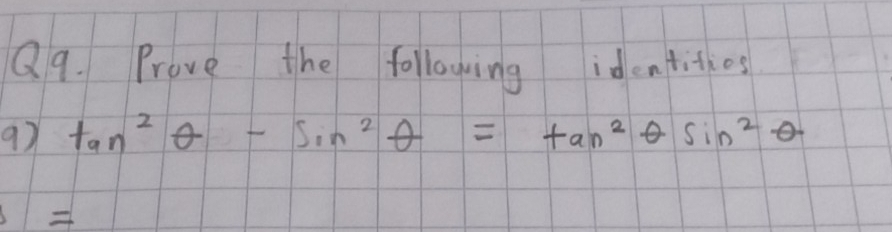 Q9. Prove the following identities
a) tan² θ - Sin² θ = tan² θ sin² θ
=